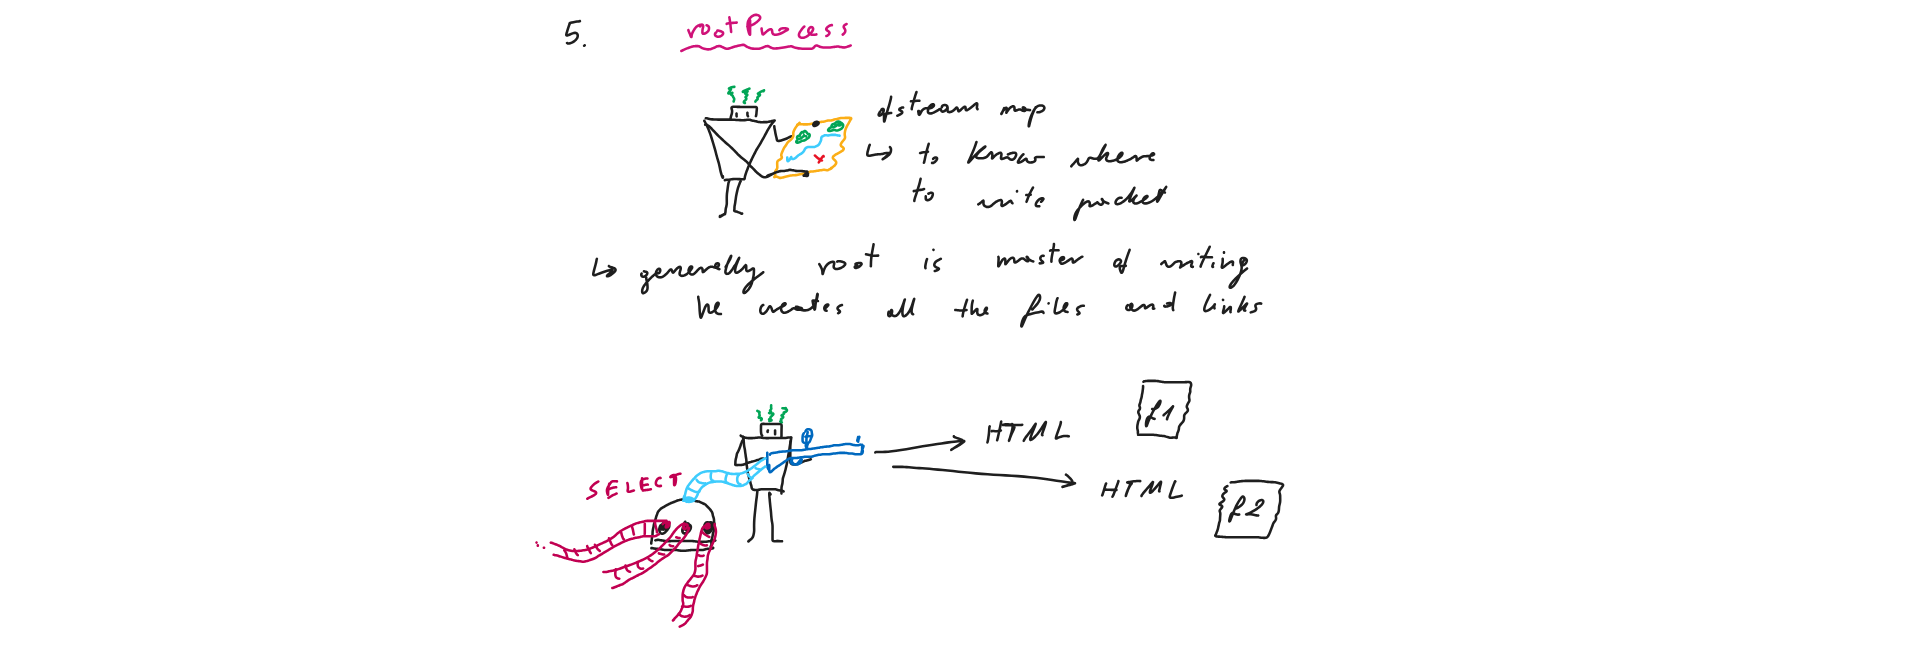 5.
rootProcess
ofstream map
↳ to know where
to write packet
↳ generally root is master of writing
he creates all the files and links
SELECT
HTML
f1
HTML
f2